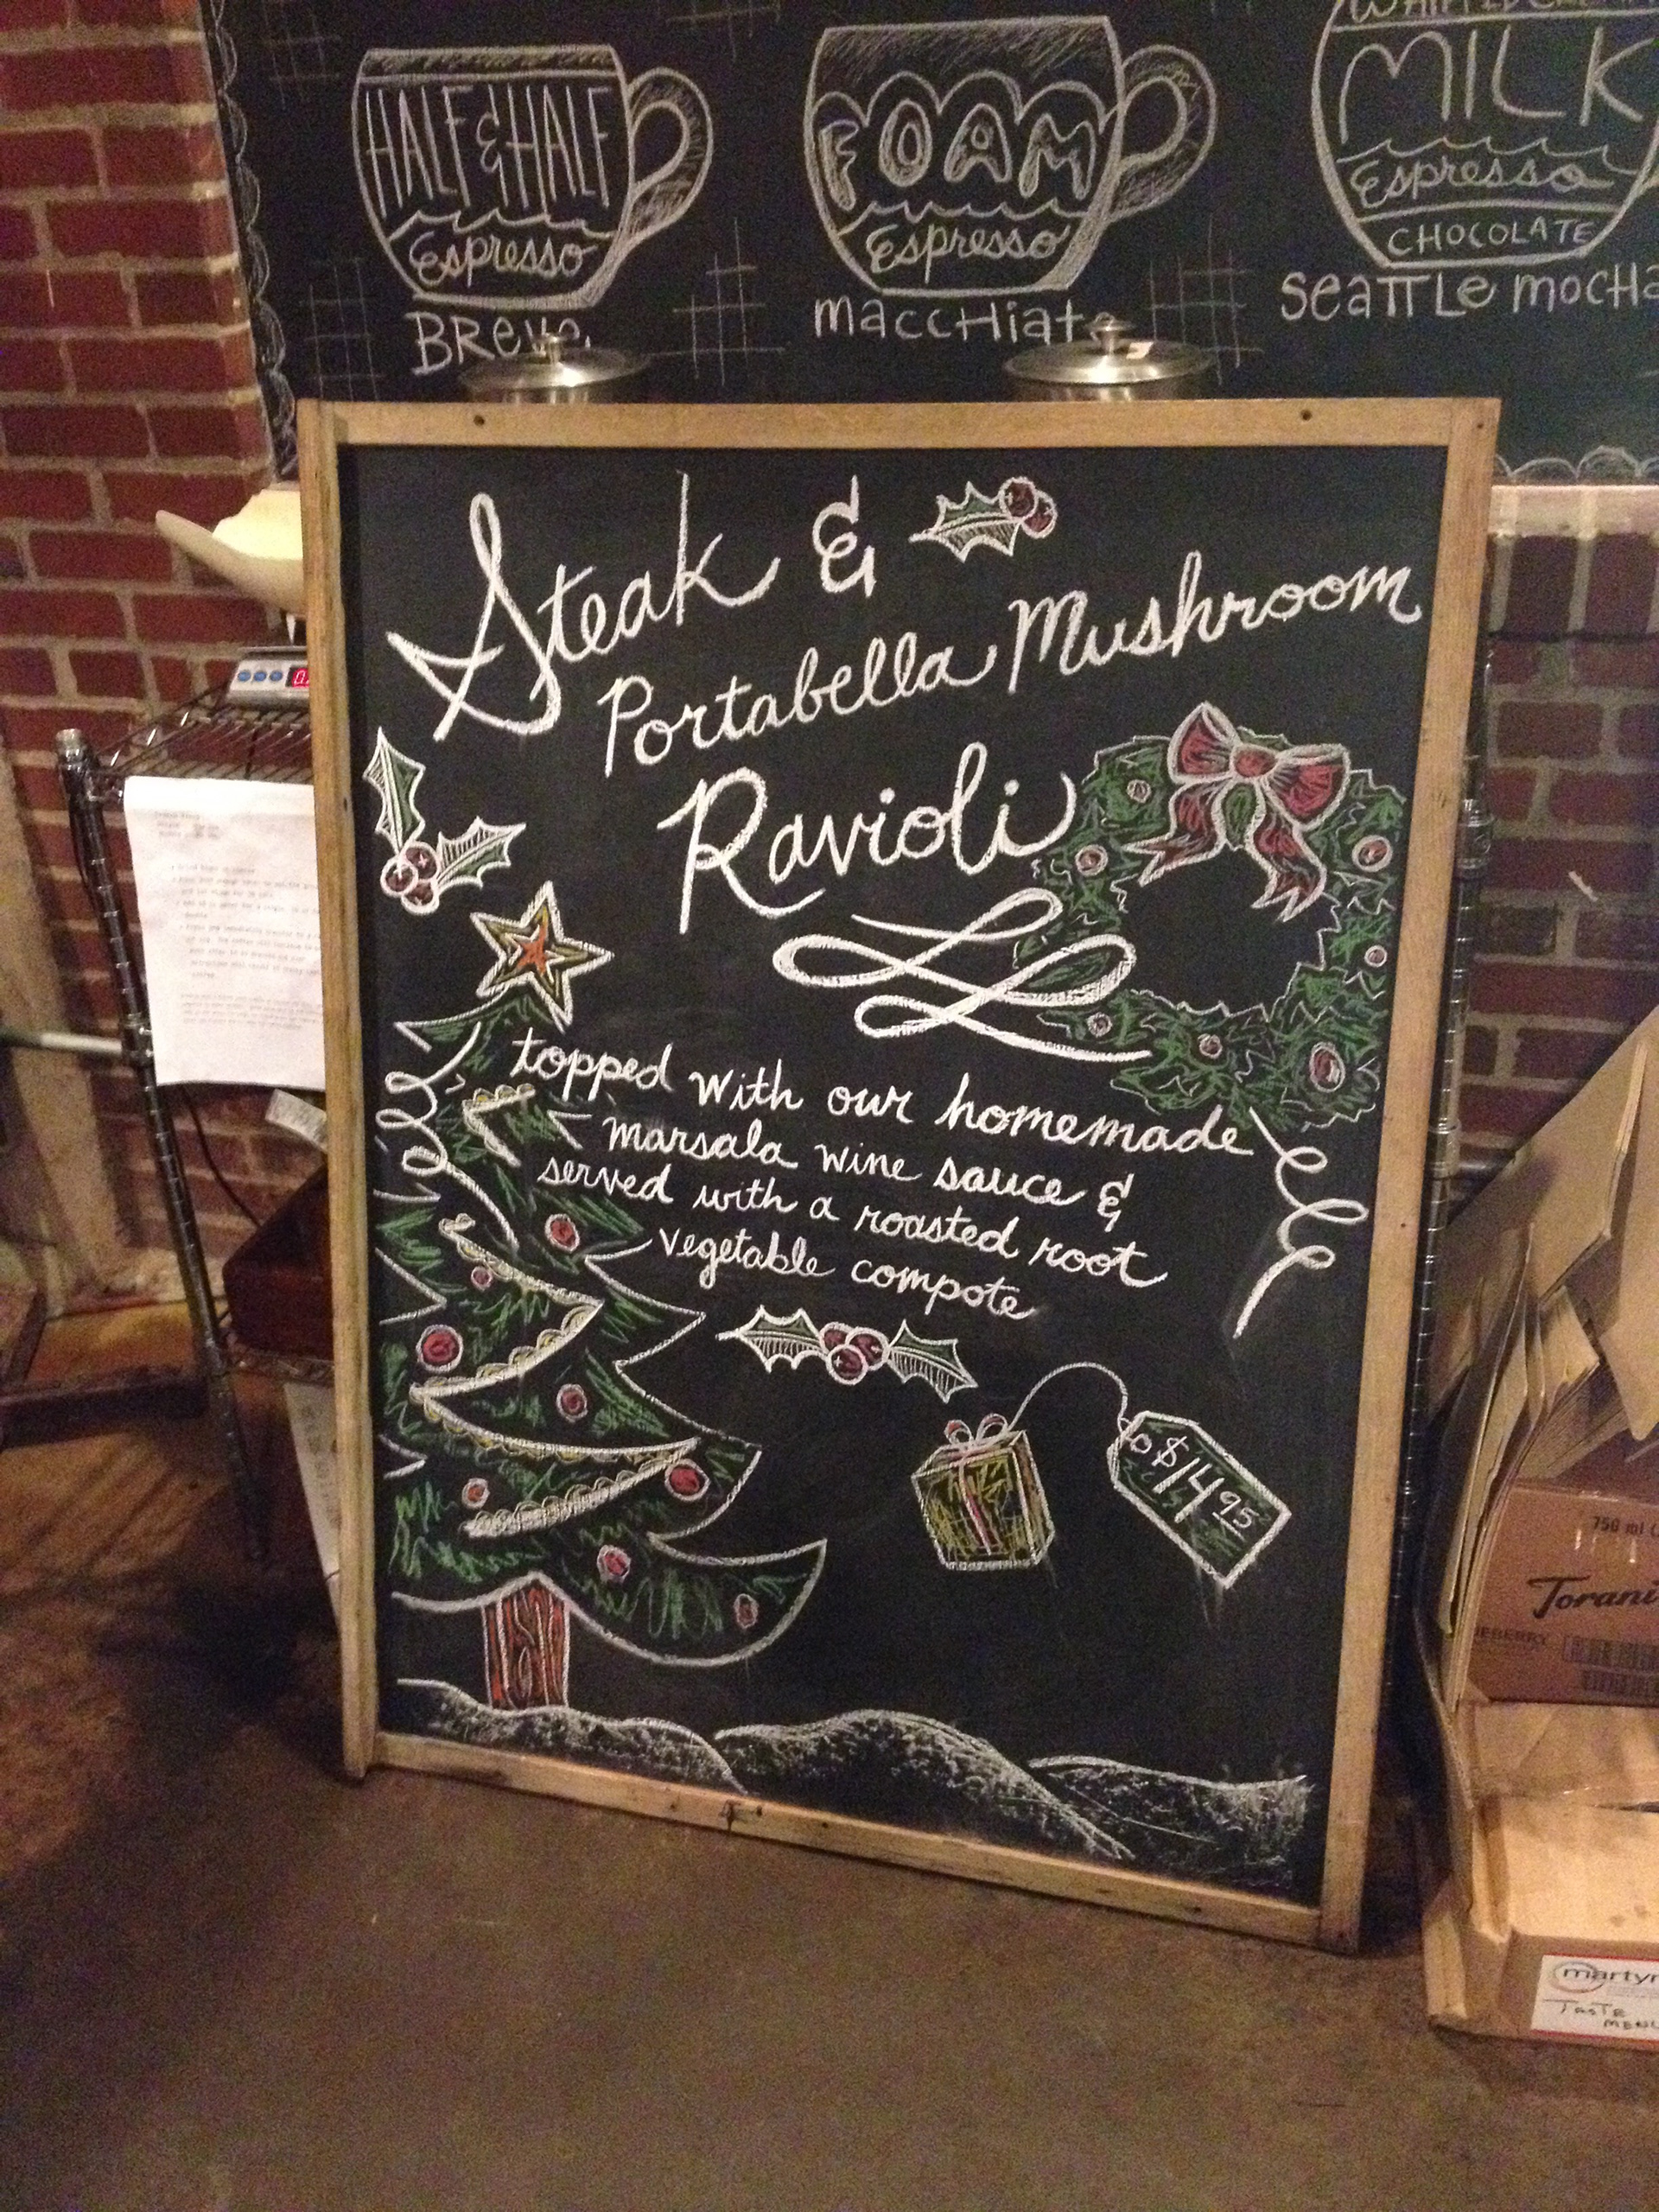 WHIPPED CREAM
HALF & HALF
Espresso
BREVE
FOAM
Espresso
macchiato
MILK
Espresso
CHOCOLATE
seattle mocha
Steak &
Portabella Mushroom
Ravioli
topped with our homemade
marsala wine sauce &
served with a roasted root
vegetable compote
$14 95
750 ml
Torani
martyr
TASTE
MENU